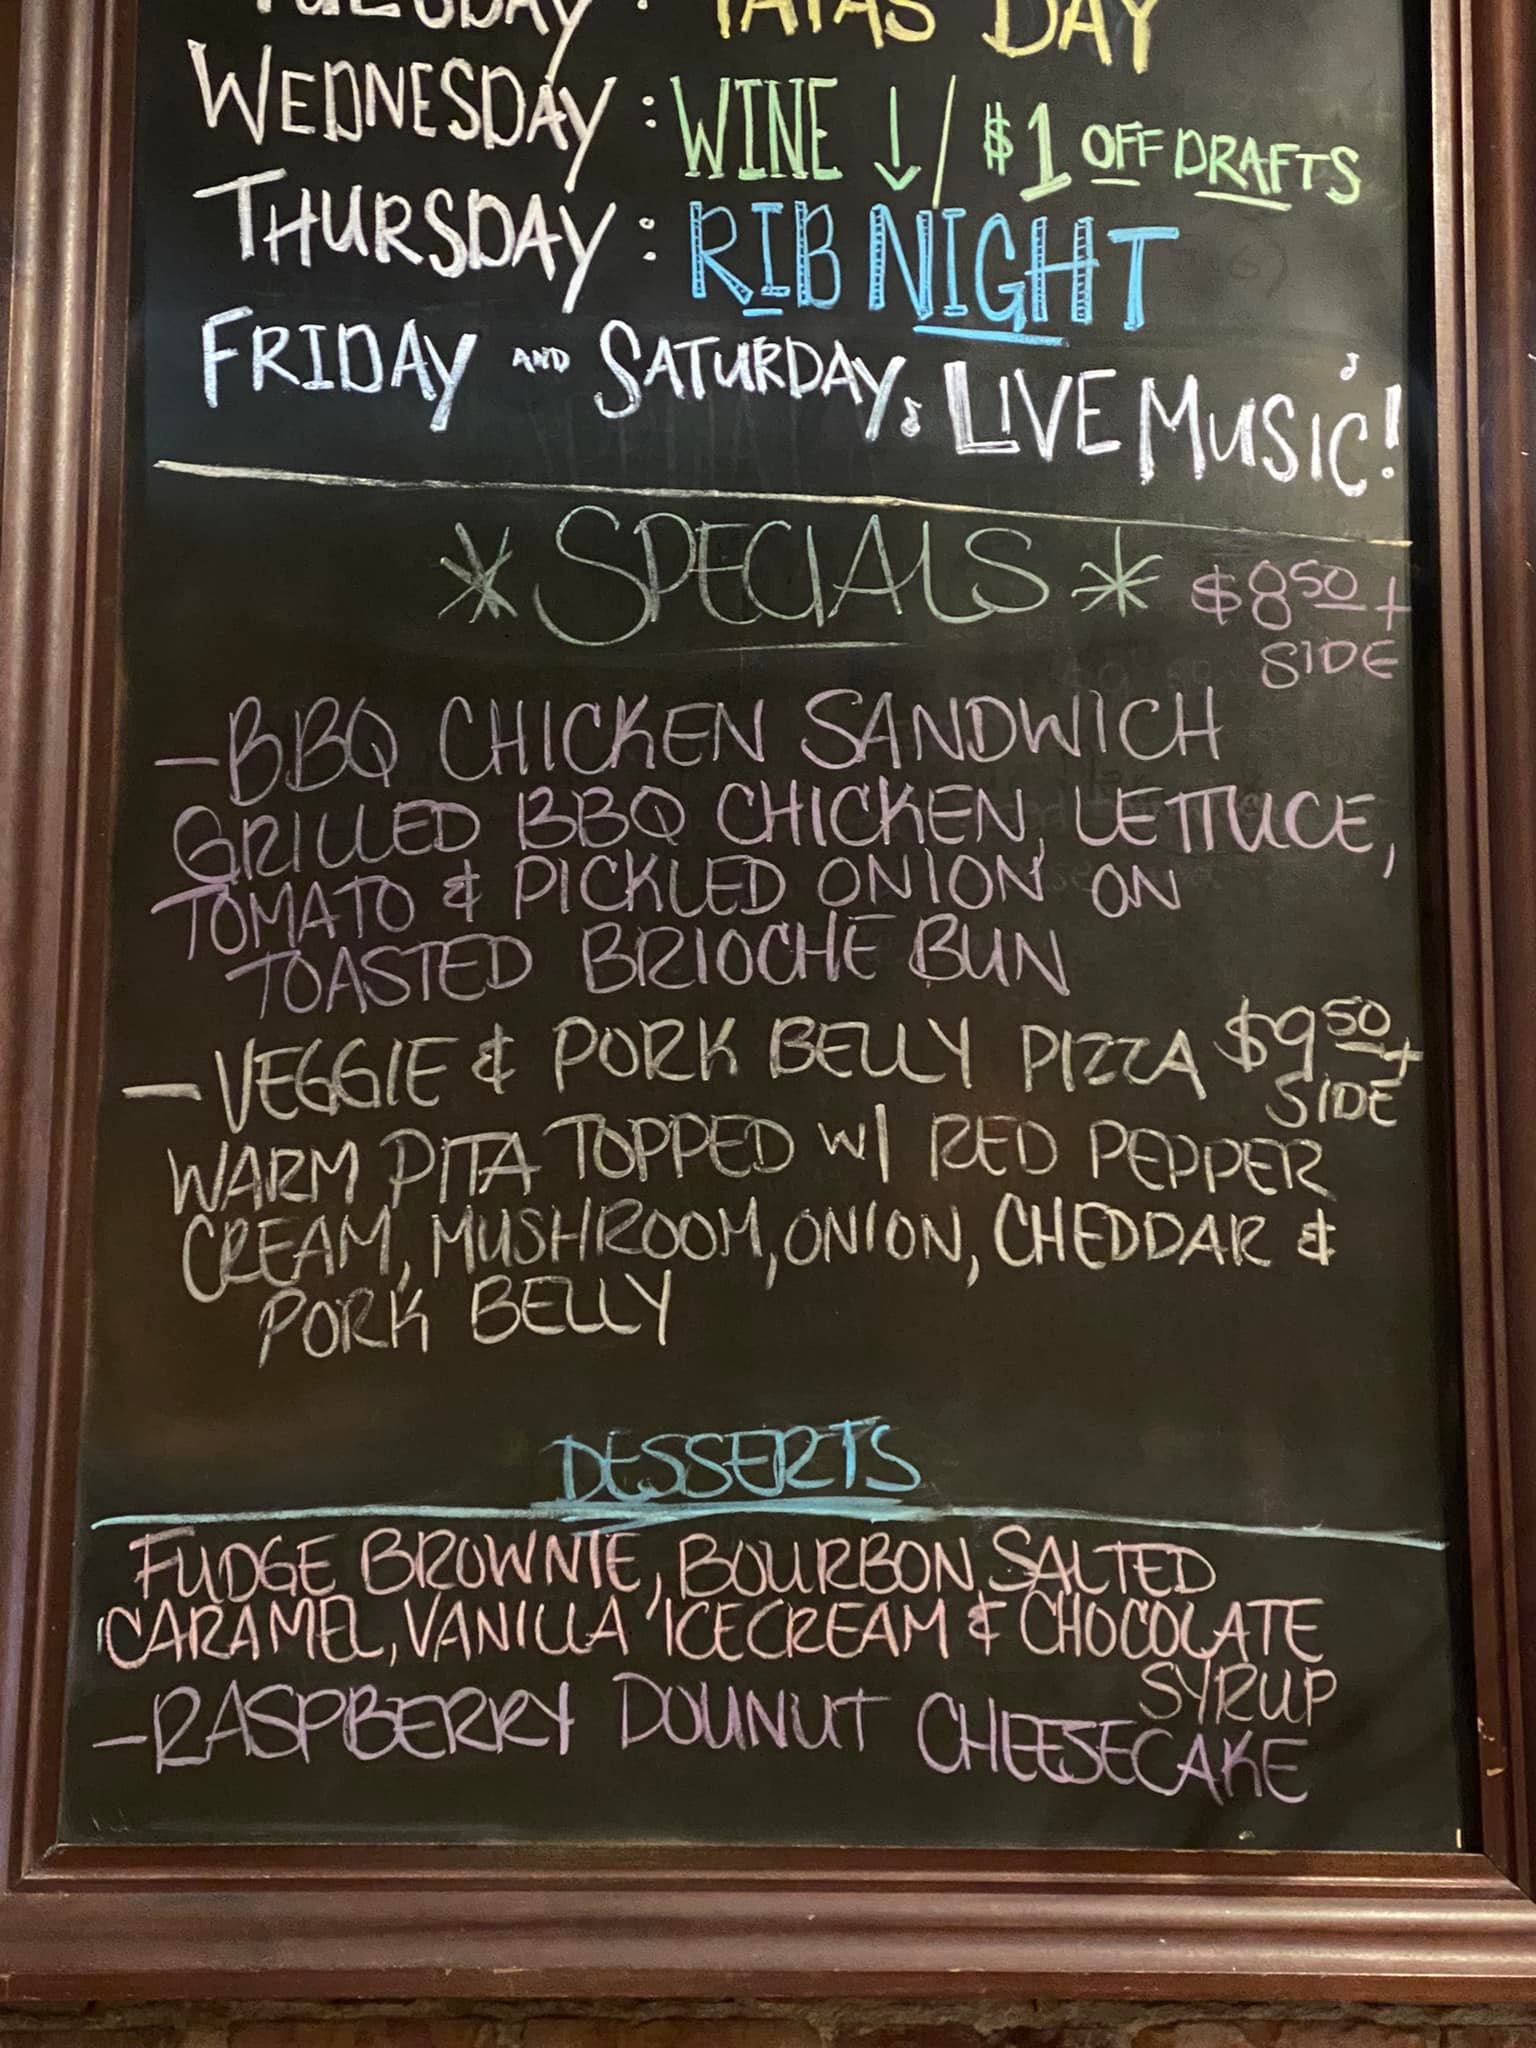 TUESDAY : TATAS DAY
WEDNESDAY : WINE ↓ / $1 OFF DRAFTS
THURSDAY : RIB NIGHT
FRIDAY AND SATURDAY ♪ LIVE MUSIC! ♪
* SPECIALS *
$8.50 +
SIDE
- BBQ CHICKEN SANDWICH
GRILLED BBQ CHICKEN, LETTUCE,
TOMATO & PICKLED ONION ON
TOASTED BRIOCHE BUN
- VEGGIE & PORK BELLY PIZZA $9.50 +
SIDE
WARM PITA TOPPED W/ RED PEPPER
CREAM, MUSHROOM, ONION, CHEDDAR &
PORK BELLY
DESSERTS
FUDGE BROWNIE, BOURBON SALTED
CARAMEL, VANILLA ICECREAM & CHOCOLATE
SYRUP
- RASPBERRY DOUNUT CHEESECAKE